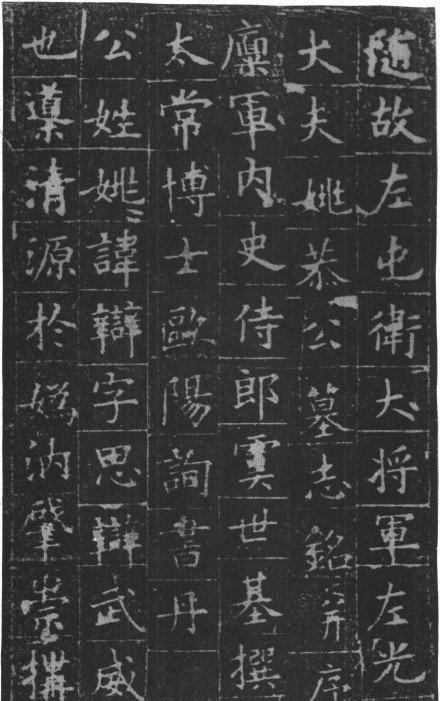 隨故左屯衛大将軍左光
大夫姚恭公墓志銘并序
廩軍内史侍郎虞世基撰
太常博士歐陽詢書丹
公姓姚諱辯字思辯武威
也導清源於媯汭肇崇構